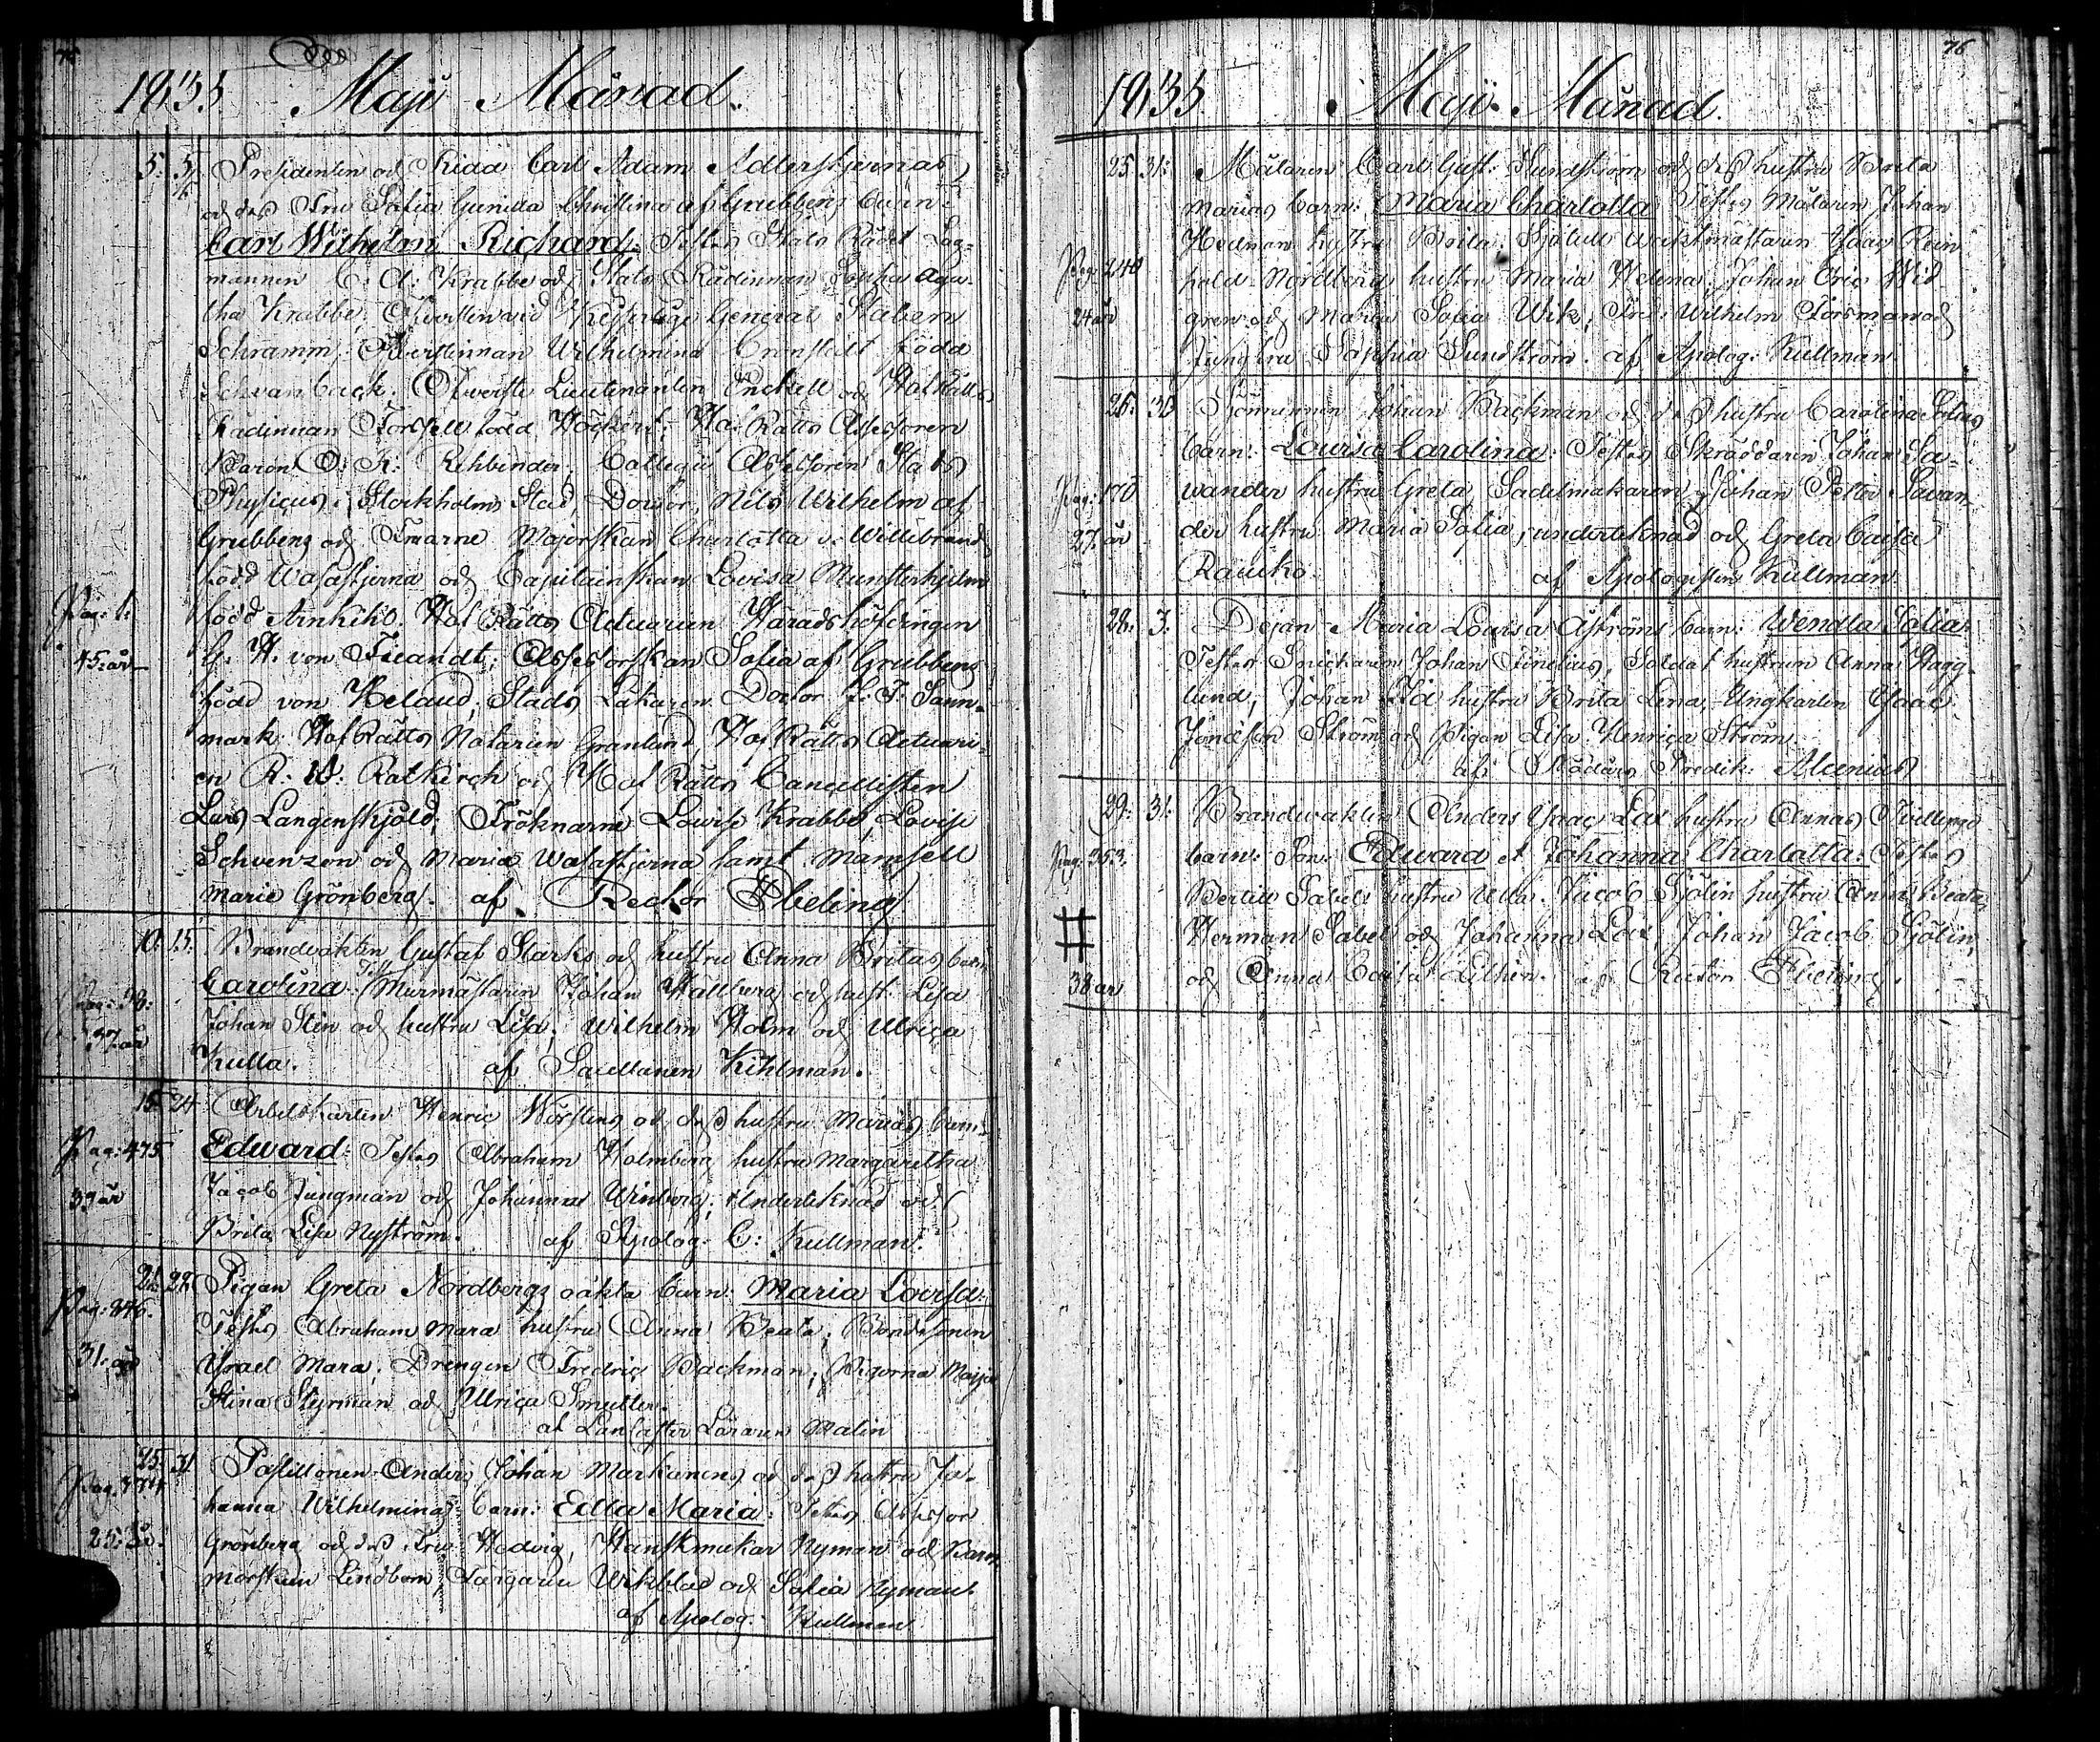 75
1835 Maji Månad.
5. 5/6 Presidenten och Ridd Carl Adam Adlerstjernas
och dess Fru Sofia Gunilla Christina af Grubbens barn:
Carl Wilhelm Richard: Testes Stats Rådet Lag=
mannen C: A: Krabbe och Stats Rådinnan Sophia Aga=
tha Krabbe; Öfversten vid Kejserlige General Staben
Schramm: Öfverstinnan Wilhelmina Cronstedt född
Schvanback. Öfverste Lieutenanten Enckell och HofRätts
Rådinnan Forssell född Höckert; Hof Rätts Assessoren
Baron O: R: Rehbinder; Collegii Assessoren Stads
Physicus i Stockholms Stad, Doctor, Nils Wilhelm af
Grubbens och Fruarne Majorskan Charlotta v: Willebrand
född Wasastjerna och Capitainskan Lovisa Munsterhjelm
Pag: 1: född Arnkihl. Hof Rätts Actuarien Häradshöfdingen
45: år G. W. von Fieandt; Assessorskan Sofia af Grubbens
född von Heland; Stads Läkaren Doctor F: J: Sann=
mark Hof Rätts Notarien Granlund, Hof Rätts Actuari=
en R: W: Ratkirch och Hof Rätts Cancellisten
Lars Langenskjöld; Fröknarne Lovise Krabbe, Lovise
Schvenzon och Maria Wasastjerna samt Mamsell
Marie Grönberg. af Rector Ebeling
10. 15. Brandvakten Gustaf Starks och hustru Anna Britas barn
Carolina: Test. Murmästaren Johan Hällberg och hust: Lisa
Johan Sten och hustru Lisa; Wilhelm Holm och Ulrica
37. år
Kulla. af Sacellanen Kihlman.
15 24 Arbetskarlen Henric Wörstens och dess hustru Marias barn:
Pag: 475 Edward: Testes Abraham Holmberg hustru Margaretha
39 år Jacob Jungman och Johanna Winberg; Undertecknad och
Brita Lisa Nyström. af Apolog: C: Kullman.
21. 22. Pigan Greta Nordbergs oäkta barn: Maria Lovisa:
Pag: 346. Testes Abraham Mara hustru Anna Beata; Bondesonen
31: år Israel Mara; Drengen Fredric Backman; Pigorna Maja
Stina Styrman och Ulrica Smulter.
af Lancaster Läraren Malin
25. 31 Postillonen Anders Johan Markunens och dess hustru Jo=
hanna Wilhelminas barn: Edla Maria: Testes Assessor
25: år. Grönberg och dess Fru Hedvig, Handskmakar Nyman och Barn
morskan Lindbom Färgaren Wikblad och Sofia Nyman.
af Apolog: Kullman.
76
1835. Maji Månad.
25 31: Målaren Carl Gust: Sundström och dess hustru Brita
Marias barn: Maria Charlotta Testes Målaren Johan
Hedman hustru Brita; Waktmästaren Isaac Rein
Pag: 240 hold Nordberg hustru Maria Helena; Johan Eric Wid
24 år gren och Maria Sofia Wik; Fred: Wilhelm Forsman och
Jungfru Sophia Sundström. af Apolog: Kullman.
26: 31 Sjömannen Johan Backman och dess hustru Carolina Sofias
barn: Lovisa Carolina: Testes Skräddaren Johan Sa=
Pag: 170 wander hustru Greta, Sadelmakaren Johan Petter Savan=
27. år der hustru Maria Sofia; undertecknad och Greta Caisa
Rauiko. af Apologisten Kullman.
28: 3. Dejan Maria Lovisa Åströms barn: Wendla Sofia:
Testes Snickaren Johan Finelius, Soldat hustrun Anna Hägg
lund; Johan Ed hustru Brita Lena, Ungkarlen Isaac
Jonasson Ström och Pigan Lisa Henrica Ström
af Nådårs Predik: Alcenius
29: 31. Brandvakten Anders Isaac Lax hustru Annas Tvillinge
Pag: 353. barn: Son: Edward et Johanna Charlotta: Testes
Bertill Sabels hustru Ulla. Jacob Sjölin hustru Anna Beata
# Herman Sabel och Johanna Lax; Johan Jacob Sjölin
38 år och Anna Caisa Lithén. af Rector Ebeling.